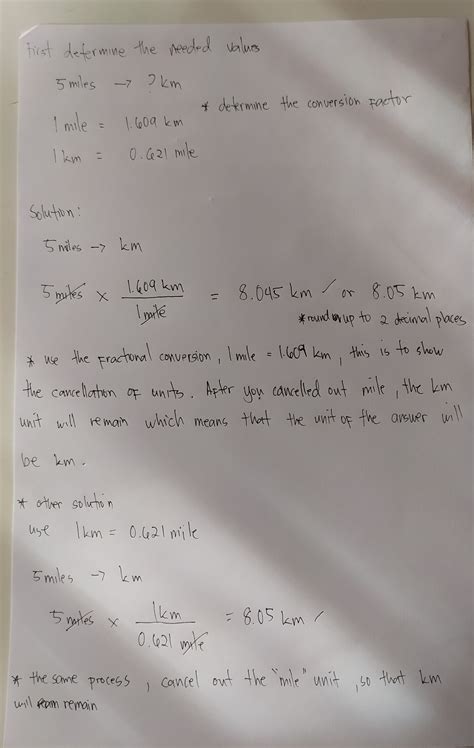 First determine the needed values
5 miles → ? km
* determine the conversion factor
1 mile = 1.609 km
1 km = 0.621 mile
Solution:
5 miles → km
5 miles × 1.609 km / 1 mile = 8.045 km / or 8.05 km
* round up to 2 decimal places
* use the fractional conversion, 1 mile = 1.609 km, this is to show
the cancellation of units. After you cancelled out mile, the km
unit will remain which means that the unit of the answer will
be km.
* other solution
use 1 km = 0.621 mile
5 miles → km
5 miles × 1 km / 0.621 mile = 8.05 km /
* the same process, cancel out the "mile" unit, so that km
will remain